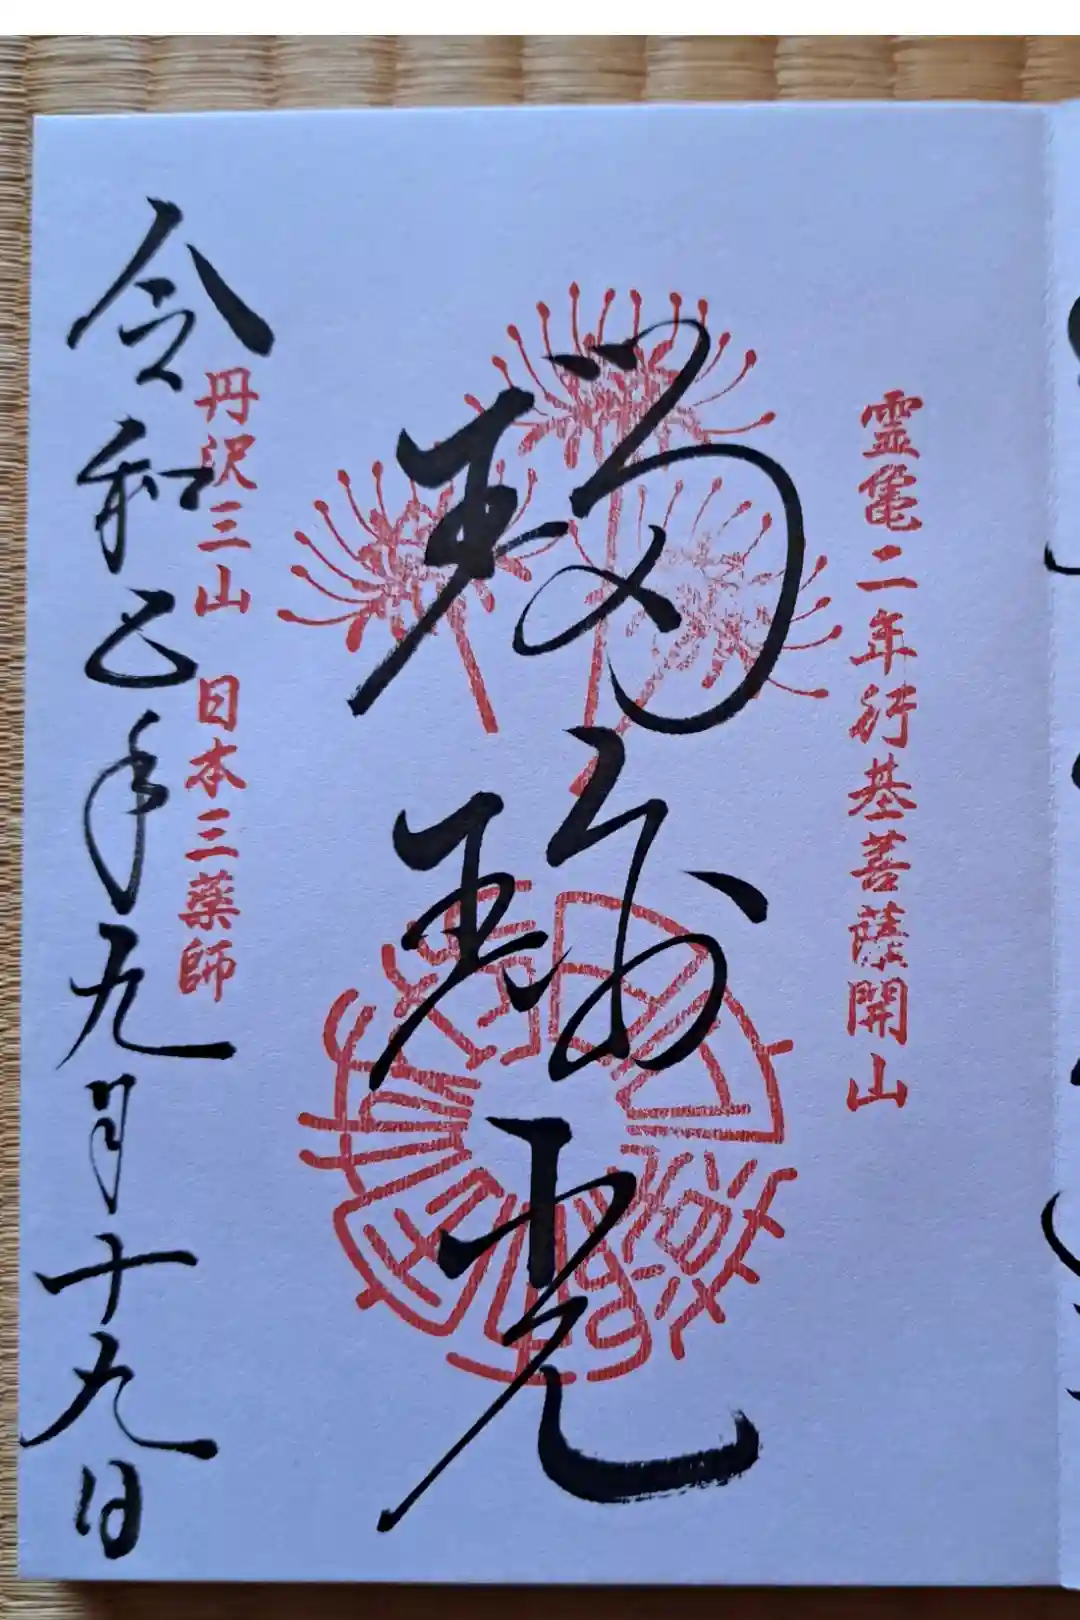 霊亀二年行基菩薩開山
瑠璃光
丹沢三山 日本三薬師
令和五年九月十九日